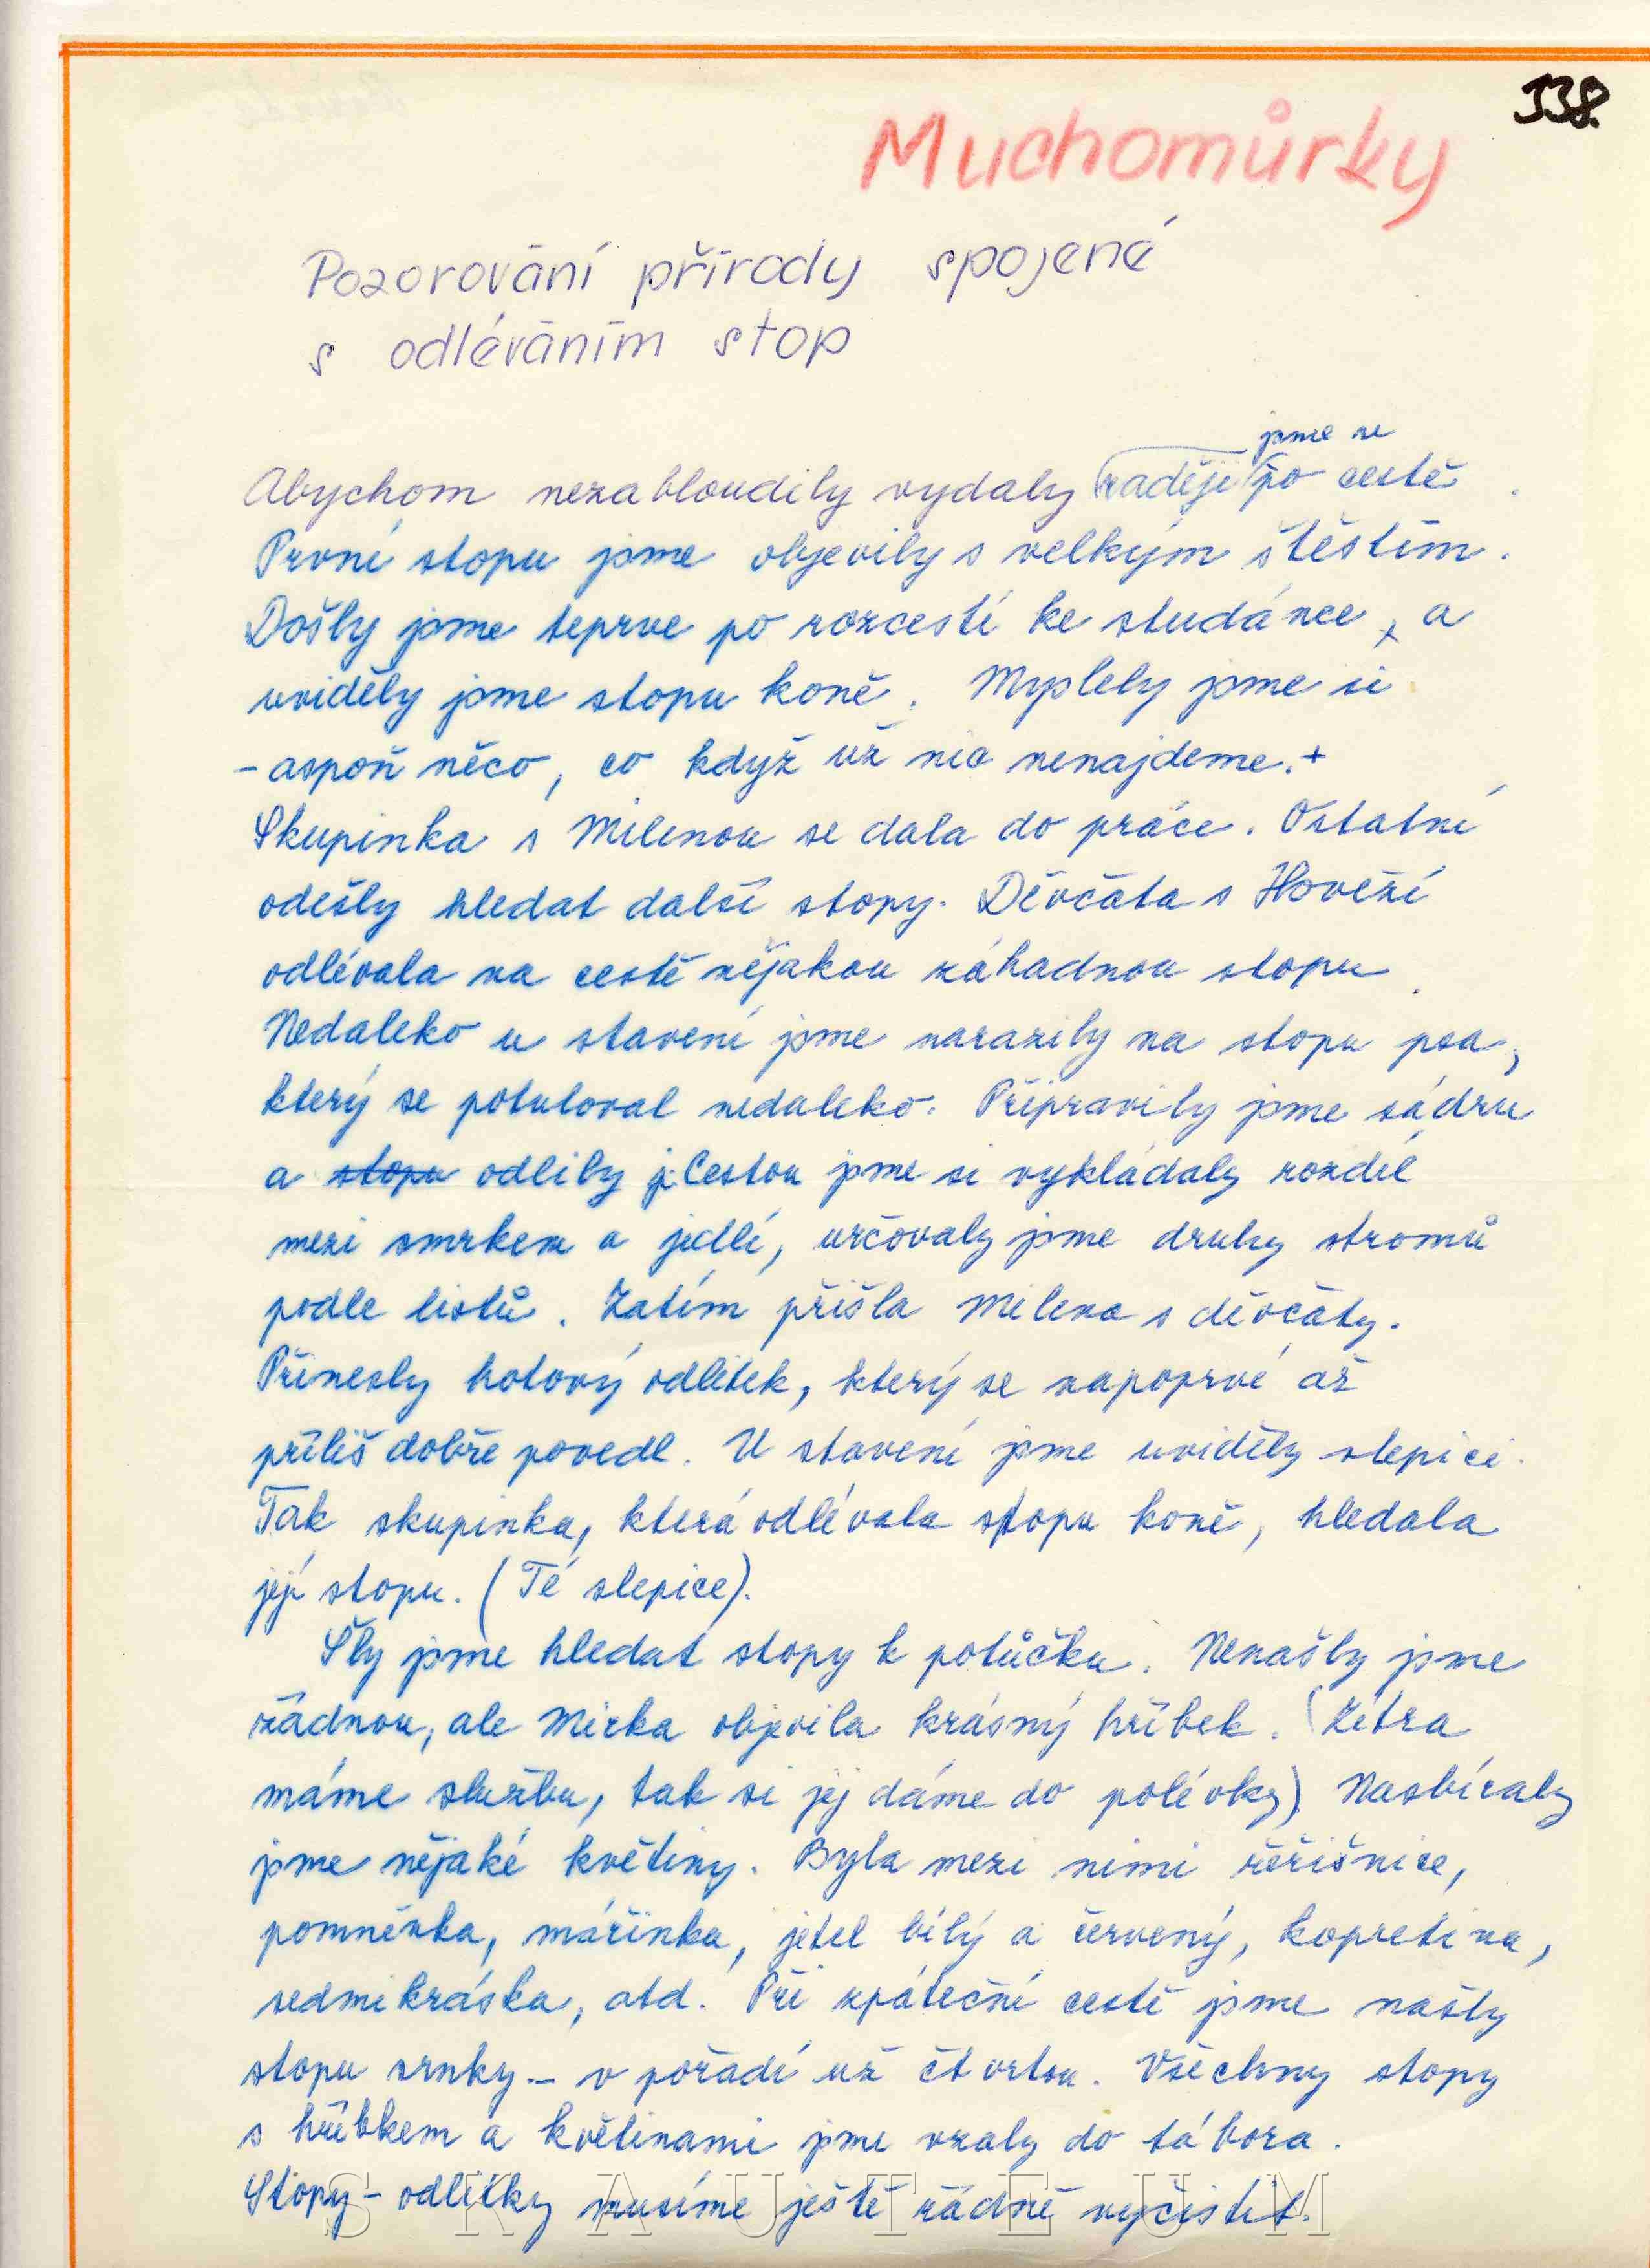 338.
Muchomůrky
Pozorování přírody spojené
s odléváním stop
jsme se
Abychom nezabloudily vydaly raději po cestě
První stopu jsme objevily s velkým štěstím.
Došly jsme teprve po rozcestí ke studánce, a
uviděly jsme stopu koně. Myslely jsme si
- aspoň něco, co když už nic nenajdeme. +
Skupinka s Milenou se dala do práce. Ostatní
odešly hledat další stopy. Děvčata s Hovězí
odlévala na cestě nějakou záhadnou stopu.
Nedaleko u stavení jsme narazily na stopu psa,
který se potuloval nedaleko. Připravily jsme sádru
a stopu odlily ji. Cestou jsme si vykládaly rozdíl
mezi smrkem a jedlí, určovaly jsme druhy stromů
podle listů. Zatím přišla Milena s děvčaty.
Přinesly hotový odlitek, který se napoprvé až
příliš dobře povedl. U stavení jsme uviděly slepici.
Tak skupinka, která odlévala stopu koně, hledala
její stopu. (Té slepice).
Šly jsme hledat stopy k potůčku. Nenašly jsme
žádnou, ale Mirka objevila krásný hříbek. (Zítra
máme službu, tak si jej dáme do polévky) Nasbíraly
jsme nějaké květiny. Byla mezi nimi řeřišnice,
pomněnka, mařinka, jetel bílý a červený, kopretina,
sedmikráska, atd. Při zpáteční cestě jsme našly
stopu srnky - v pořadí už čtvrtou. Všechny stopy
s hříbkem a květinami jsme vzaly do tábora.
Stopy - odlitky musíme ještě řádně vyčistit.
SKAUTEUM